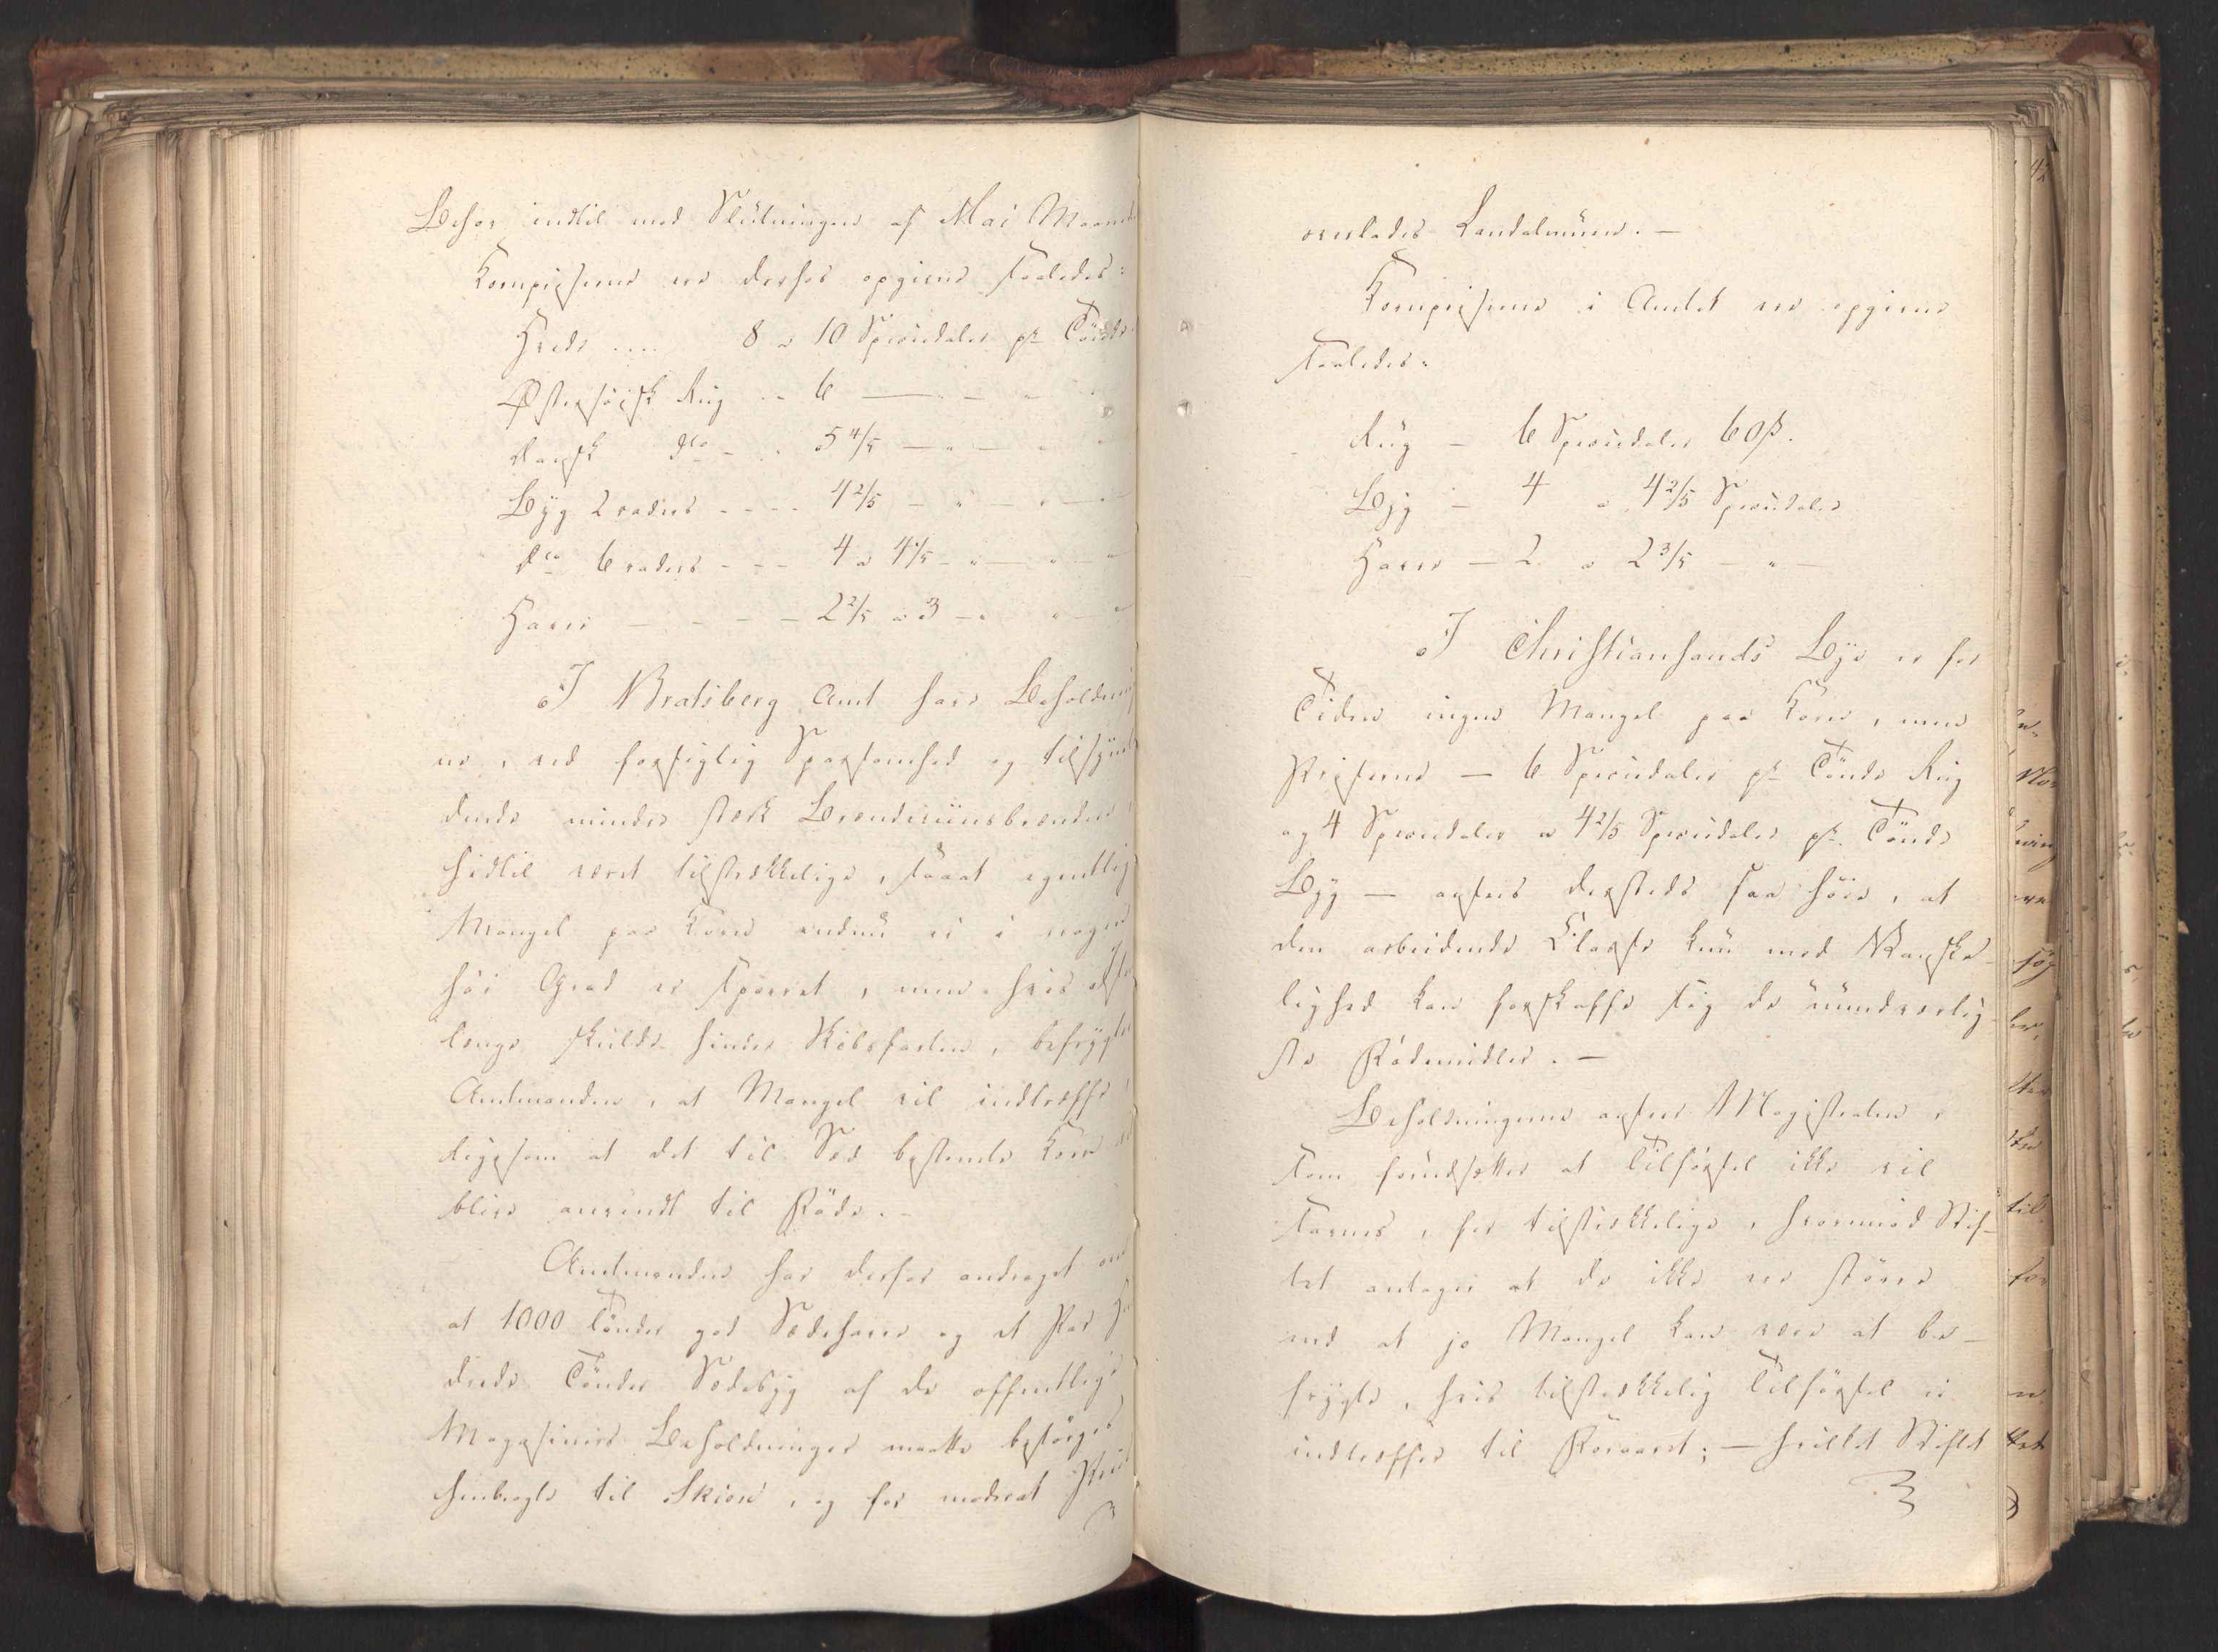 Behov indtil med Slutningen af Mai Maaned
Kornpriserne ere derhos opgivne saaledes:
Hvede .... 8 a 10 Speciedaler pr Tönde
Østersöisk Rug .. 6 — " — " "
dansk do - . 5 4/5 — " — " "
Byg 2 radigt - - - - 4 2/5 — " — " — "
do 6 radigt - - - 4 a 4 1/5 - " — " — "
Havre — - - - — 2 2/5 a 3 — " " — "
I Bratsberg Amt have Beholdnin
ne, ved forsiglig Sparsomhed og tilsyne
dende mindre stærk Brændeviinsbrænden,
hidtil været tilstrækkelige, saaat egentlig
Mangel paa Korn endnu ei i nogen
höi Grad er sporet, men hvis
længe skulde hindre Skibsfarten, befrygter
Amtmanden, at Mangel vil indtræffe,
ligesom at det til Sæd bestemte Korn
blive anvendt til Föde. -
Amtmanden har derfor andraget om
at 1000 Tönder god Sædehavre og et Par Hun
drede Tönder Sædebyg af de offentlige
Magasiners Beholdninger maatte besörges
henbragte til Skien, og for moderat Priis
overlades Landalmuen. —
Kornpriserne i Amtet ere opgivne
saaledes:
Rug — 6 Speciedaler 60 ß.
Byg — 4 a 4 2/5 Speciedaler
Havre — 2 a 2 3/5 — " —
I Christiansands Bye er for
Tiden ingen Mangel paa Korn, men
Priserne — 6 Speciedaler pr Tönde Rug
og 4 Speciedaler a 4 2/5 Speciedaler pr. Tönde
Byg — ansees dersteds saa höie, at
den arbeidende Classe kun med Vanske-
lighed kan forskaffe sig de uundværlig-
ste Födemidler. —
Beholdningerne anseer Magistraten,
som forudsætter at Tilförsel ikke vil
savnes, for tilstrækkelige, hvorimod Stif-
tet antager at de ikke ere större
end at jo Mangel kan være at be-
frygte, hvis tilstrækkelig Tilförsel ei
indtræffer til Foraaret; — hvilket Stiftet